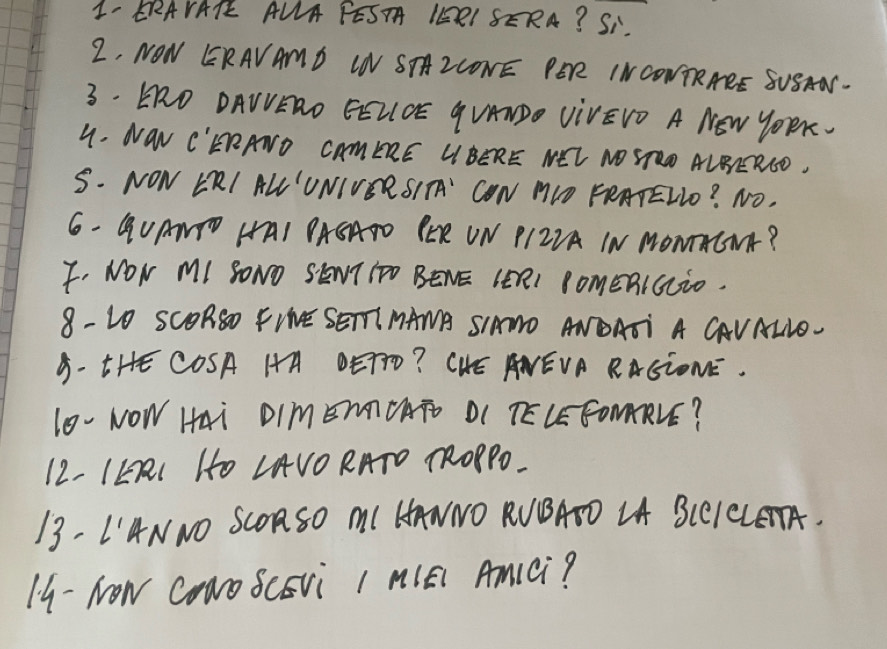 1- ERAVATE ALLA FESTA IERI SERA? Sì.
2. NON ERAVAMO IN STAZIONE PER INCONTRARE SUSAN.
3- ERO DAVVERO FELICE QUANDO VIVEVO A NEW YORK.
4- NON C'ERANO CAMERE LIBERE NEL NOSTRO ALBERGO.
5- NON ERI ALL'UNIVERSITA' CON MIO FRATELLO? NO.
6- QUANTO HAI PAGATO PER UN PIZZA IN MONTAGNA?
7. NON MI SONO SENTITO BENE IERI POMERIGGIO.
8- LO SCORSO FINE SETTIMANA SIAMO ANDATI A CAVALLO.
9- CHE COSA HA DETTO? CHE AVEVA RAGIONE.
10- NON HAI DIMENTICATO DI TELEFONARLE?
12- IERI HO LAVORATO TROPPO.
13- L'ANNO SCORSO MI HANNO RUBATO LA BICICLETTA.
14- NON CONOSCEVI I MIEI AMICI?